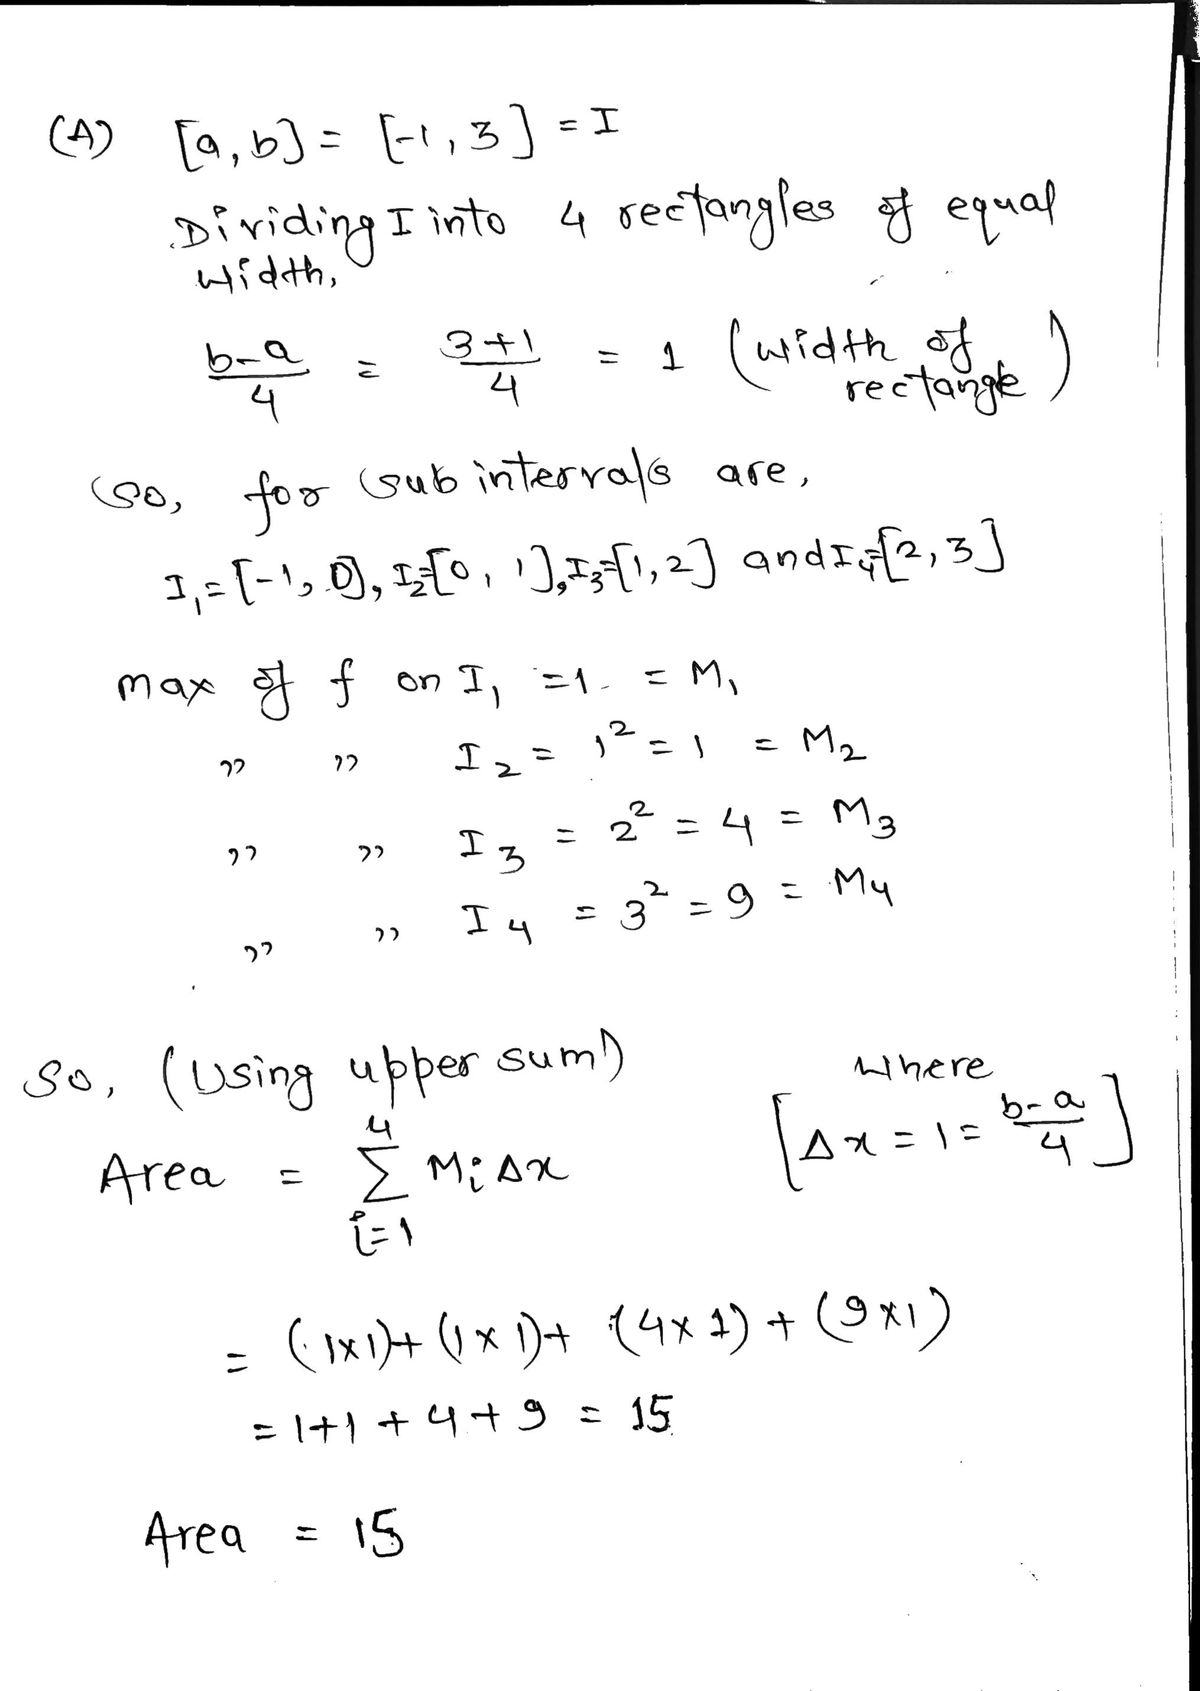 (A) [a, b] = [-1, 3] = I
Dividing I into 4 rectangles of equal
width,
b-a/4 = 3+1/4 = 1 (width of rectangle)
So, for sub intervals are,
I₁ = [-1, 0], I₂=[0, 1], I₃=[1, 2] and I₄=[2, 3]
max of f on I₁ = 1 = M₁
" " I₂ = 1² = 1 = M₂
" " I₃ = 2² = 4 = M₃
" " I₄ = 3² = 9 = M₄
So, (Using upper sum)
Area = ∑_{i=1}^{4} Mᵢ Δx
where
[Δx = 1 = b-a/4]
= (1×1)+(1×1)+(4×1)+(9×1)
= 1+1+4+9 = 15
Area = 15